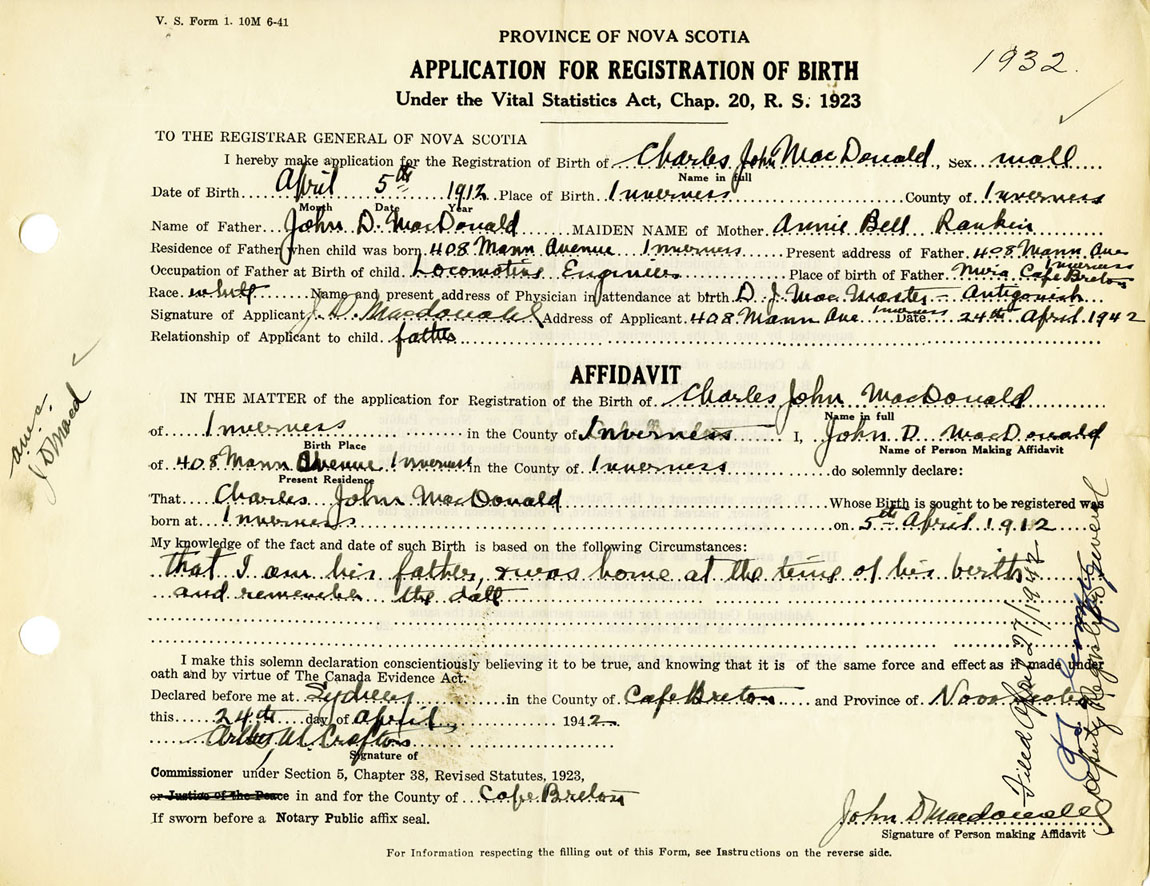 V. S. Form 1. 10M 6-41
PROVINCE OF NOVA SCOTIA
1932.
APPLICATION FOR REGISTRATION OF BIRTH
Under the Vital Statistics Act, Chap. 20, R. S. 1923
TO THE REGISTRAR GENERAL OF NOVA SCOTIA
I hereby make application for the Registration of Birth of Charles John MacDonald, Sex male
Name in full
Date of Birth April 5th 1912 Place of Birth Inverness County of Inverness
Month Date Year
Name of Father John D. MacDonald MAIDEN NAME of Mother Annie Bell Rankin
Residence of Father when child was born 408 Mann Avenue Inverness Present address of Father 408 Mann Ave Inverness
Occupation of Father at Birth of child Locomotive Engineer Place of birth of Father Mira Cape Breton
Race white Name and present address of Physician in attendance at birth D. J. MacMaster - Antigonish
Signature of Applicant J. D. Macdonald Address of Applicant 408 Mann Ave Inverness Date 24th April 1942
Relationship of Applicant to child father
AFFIDAVIT
IN THE MATTER of the application for Registration of the Birth of Charles John MacDonald
Name in full
of Inverness in the County of Inverness I, John D. MacDonald
Birth Place Name of Person Making Affidavit
of 408 Mann Avenue Inverness in the County of Inverness do solemnly declare:
Present Residence
That Charles John MacDonald Whose Birth is sought to be registered was
born at Inverness on 5th April 1912
My knowledge of the fact and date of such Birth is based on the following Circumstances:
that I am his father, & was home at the time of his birth
and remember the date
I make this solemn declaration conscientiously believing it to be true, and knowing that it is of the same force and effect as if made under
oath and by virtue of The Canada Evidence Act.
Declared before me at Sydney in the County of Cape Breton and Province of Nova Scotia
this 24th day of April 1942
Signature of
Commissioner under Section 5, Chapter 38, Revised Statutes, 1923,
or Justice of the Peace in and for the County of Cape Breton
If sworn before a Notary Public affix seal.
John D Macdonald
Signature of Person making Affidavit
For Information respecting the filling out of this Form, see Instructions on the reverse side.
Filed April 27/1942
Deputy Registrar General